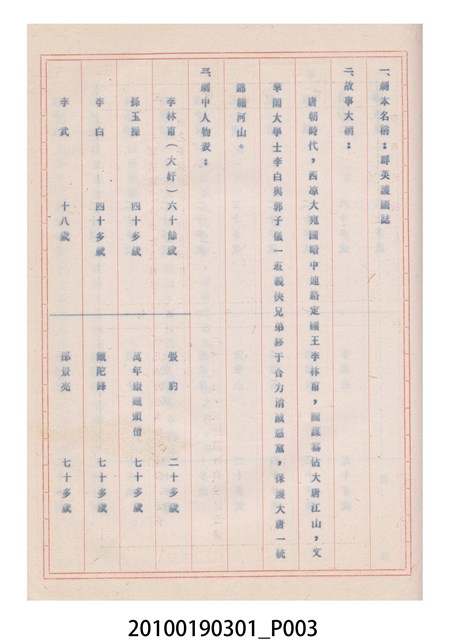 一、劇本名稱：群英護國誌
二、故事大綱：
唐朝時代，西凉大宛國暗中連絡定國王李林甫，圖謀霸佔大唐江山，文
華閣大學士李白與郭子儀一班義俠兄弟終于合力消滅惡黨，保護大唐一統
錦繡河山。
三、劇中人物表：
李林甫（大奸）六十餘歲
孫玉 四十多歲
李白 四十多歲
李武 十八歲
張豹 二十多歲
萬年 頭僧 七十多歲
鐵陀 七十多歲
邵景亮 七十多歲
20100190301_P003